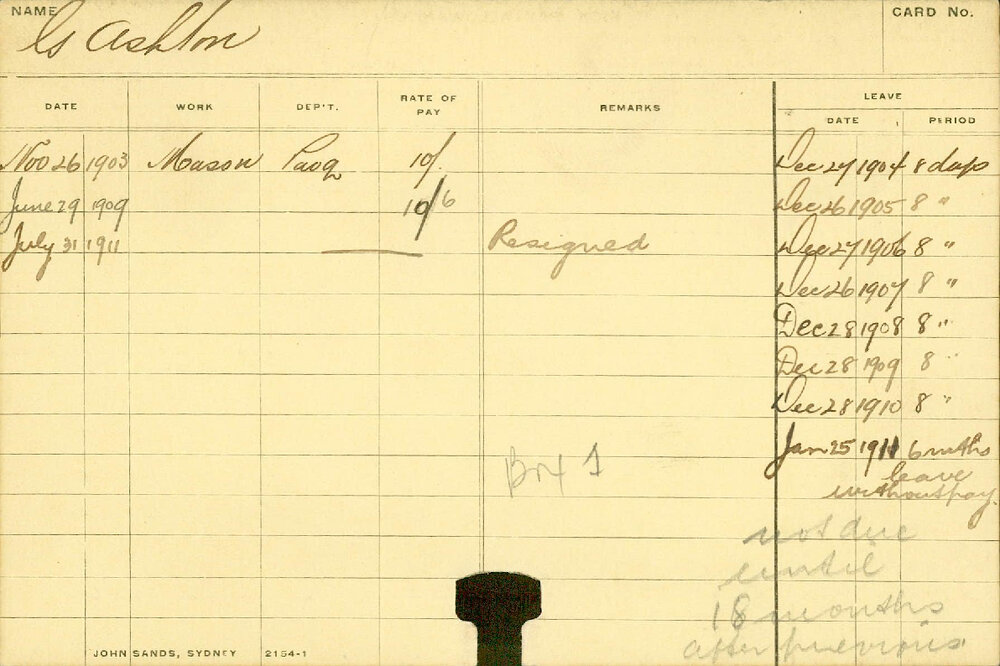 NAME CARD No.
G Ashton
LEAVE
DATE WORK DEP'T. RATE OF PAY REMARKS DATE PERIOD
Nov 26 1903 Mason Pavg 10/. Dec 27 1904 8 days
June 29 1909 10/6 Dec 26 1905 8 "
July 31 1911 Resigned Dec 27 1906 8 "
Dec 26 1907 8 "
Dec 28 1908 8 "
Dec 28 1909 8 "
Dec 28 1910 8 "
Jan 25 1911 6 mths
leave
without pay.
Box 1
not due
until
18 months
after previous
JOHN SANDS, SYDNEY 2154-1